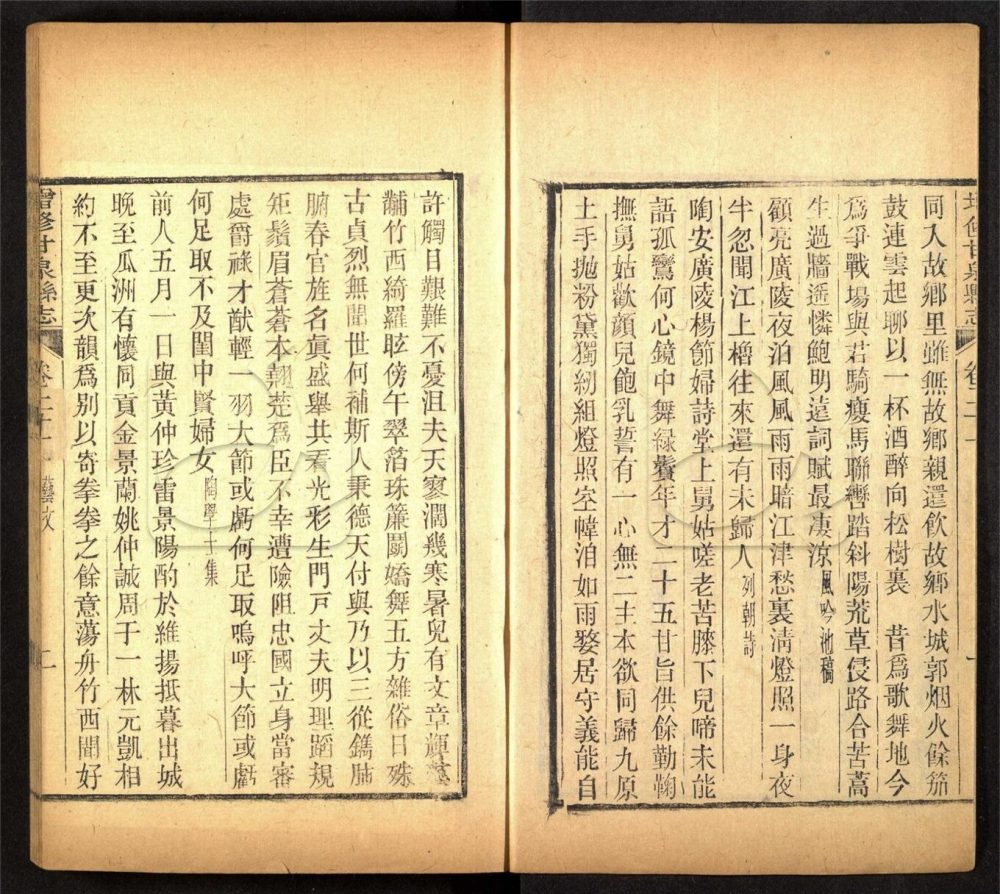 增修甘泉縣志 卷二十
同入故鄉里雖無故鄉親還飲故鄉水城郭烟火餘笳
鼓連雲起聊以一杯酒醉向松樹裏 昔爲歌舞地今
爲爭戰場與若騎瘦馬聯轡踏斜陽荒草侵路合苦蒿
生過牆遥憐鮑明遠詞賦最凄涼風吟池稿
顧亮廣陵夜泊風風雨雨暗江津愁裏清燈照一身夜
半忽聞江上櫓往來還有未歸人列朝詩
陶安廣陵楊節婦詩堂上舅姑嗟老苦膝下兒啼未能
語孤鸞何心鏡中舞綠鬢年才二十五甘旨供餘勤鞠
撫舅姑歡顔兒飽乳誓有一心無二主本欲同歸九原
土手抛粉黛獨紉組燈照空幃泊如雨嫠居守義能自
許觸目艱難不憂沮夫天寥濶幾寒暑兒有文章輝
黼竹西綺羅眩傍午翠箔珠簾鬭嬌舞五方雜俗日殊
古貞烈無聞世何補斯人秉德天付與乃以三從鐫肺
腑春官旌名眞盛舉共看光彩生門戸丈夫明理蹈規
矩鬚眉蒼蒼本翹楚爲臣不幸遭險阻忠國立身當審
處爵祿才猷輕一羽大節或虧何足取嗚呼大節或虧
何足取不及閨中賢婦女陶學士集
前人五月一日與黃仲珍雷景陽酌於維揚抵暮出城
晚至瓜洲有懷同貢金景蘭姚仲誠周于一林元凱相
約不至更次韻爲别以寄拳拳之餘意蕩舟竹西聞好
增修甘泉縣志 卷二十 藝文 二